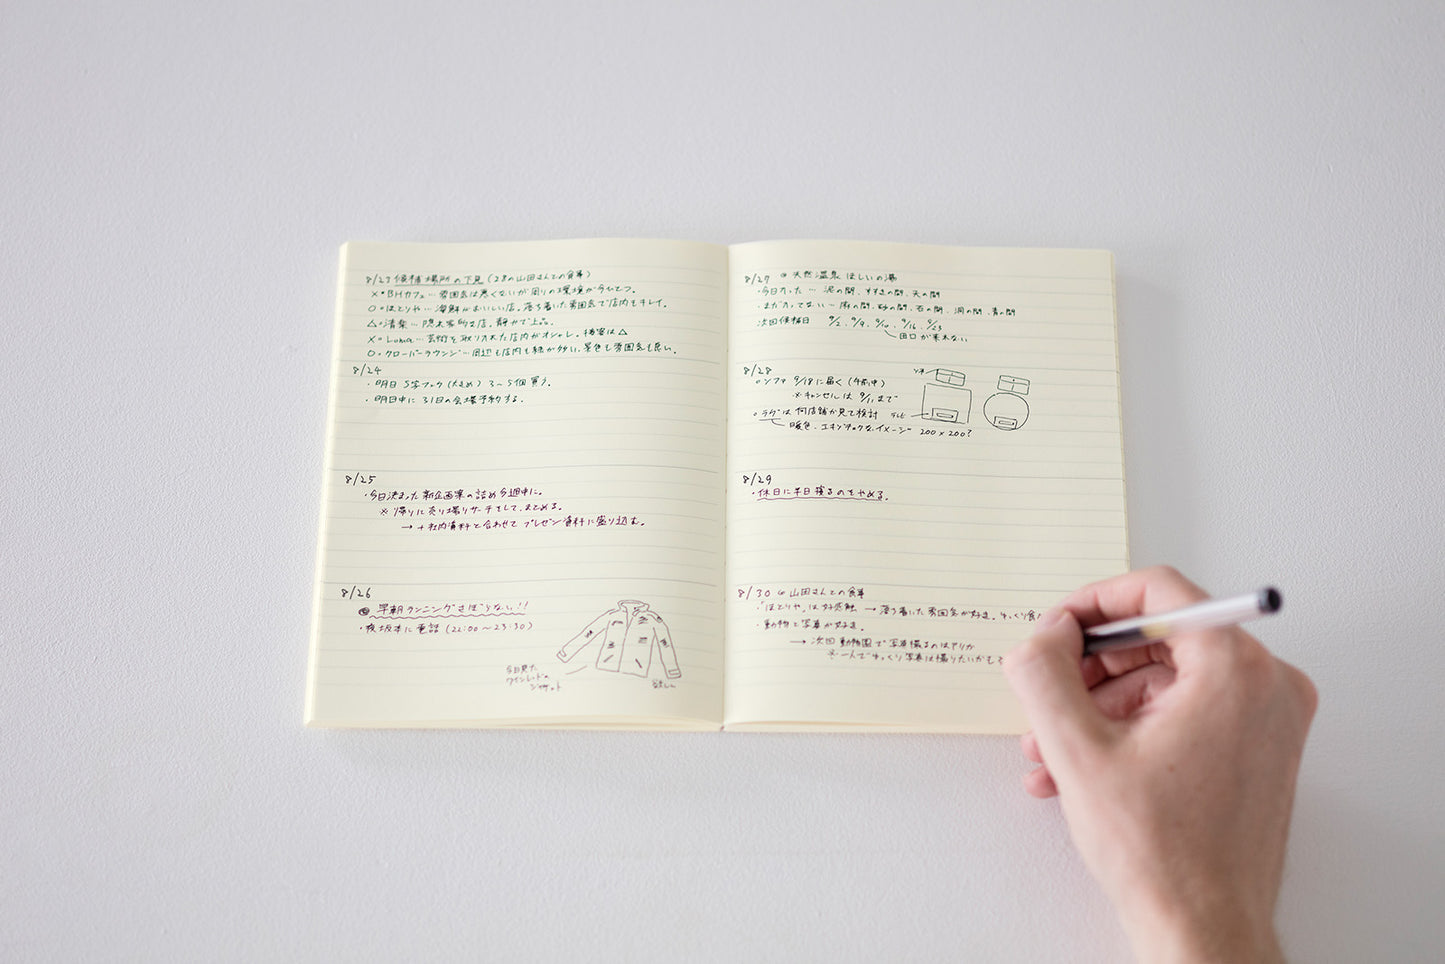 8/23 候補場所の下見 (28の山田さんとの食事)
×・BHカフェ…雰囲気は悪くないが周りの環境が今ひとつ。
○・ほとりや…海鮮がおいしい店。落ち着いた雰囲気で店内もキレイ。
△・清楽…隠れ家的な店。静かで上品。
×・Loma…芸術を取り入れた店内がオシャレ。接客は△
○・クローバーラウンジ…周辺も店内も緑が多い。景色も雰囲気も良い。
8/24
・明日 S字フック(大きめ) 3〜5個買う。
・明日中に 31日の会場予約する。
8/25
・今日決まった新企画案の詰め今週中に。
※帰りに売り場リサーチをして、まとめる。
→ + 社内資料と合わせて プレゼン資料に盛り込む。
8/26
早朝ランニングさぼらない!!
・夜坂本に電話 (22:00〜23:30)
今日見た
ワインレッドの
ジャケット
欲しい
8/27 @ 天然温泉 ほしいの湯
・今日入った … 泥の間、すすきの間、天の間
・まだ入ってない… 雨の間、砂の間、石の間、洞の間、青の間
次回候補日 9/2、9/9、9/10、9/16、9/23
田口が来れない
8/28
○ソファ 9/18に届く (午前中)
※キャンセルは 9/11まで
○ラグは何店舗か見て検討
暖色、エキゾチックなイメージ 200×200?
ソファ
テレビ
8/29
・休日に半日寝るのをやめる。
8/30 @ 山田さんとの食事
・「ほとりや」は好感触 → 落ち着いた雰囲気が好き。ゆっくり食
・動物と写真が好き。
→ 次回動物園で写真撮るのはアリか
※一人でゆっくり写真は撮りたいかも